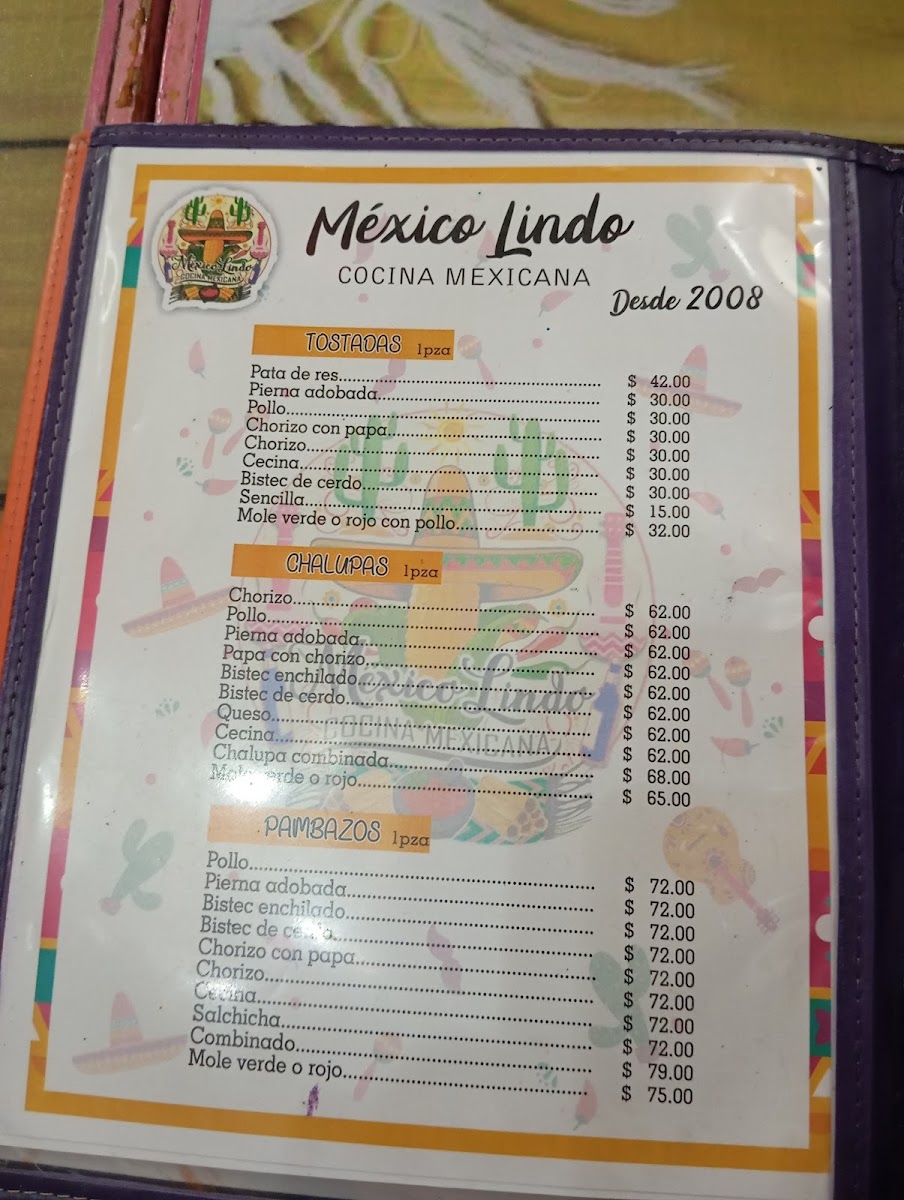 México Lindo
COCINA MEXICANA
México Lindo
COCINA MEXICANA
Desde 2008
TOSTADAS 1pza
Pata de res........ $ 42.00
Pierna adobada........ $ 30.00
Pollo........ $ 30.00
Chorizo con papa........ $ 30.00
Chorizo........ $ 30.00
Cecina........ $ 30.00
Bistec de cerdo........ $ 30.00
Sencilla........ $ 15.00
Mole verde o rojo con pollo........ $ 32.00
CHALUPAS 1pza
Chorizo........ $ 62.00
Pollo........ $ 62.00
Pierna adobada........ $ 62.00
Papa con chorizo........ $ 62.00
Bistec enchilado........ $ 62.00
Bistec de cerdo........ $ 62.00
Queso........ $ 62.00
Cecina........ $ 62.00
Chalupa combinada........ $ 68.00
Mole verde o rojo........ $ 65.00
México Lindo
COCINA MEXICANA
PAMBAZOS 1pza
Pollo........ $ 72.00
Pierna adobada........ $ 72.00
Bistec enchilado........ $ 72.00
Bistec de cerdo........ $ 72.00
Chorizo con papa........ $ 72.00
Chorizo........ $ 72.00
Cecina........ $ 72.00
Salchicha........ $ 72.00
Combinado........ $ 79.00
Mole verde o rojo........ $ 75.00